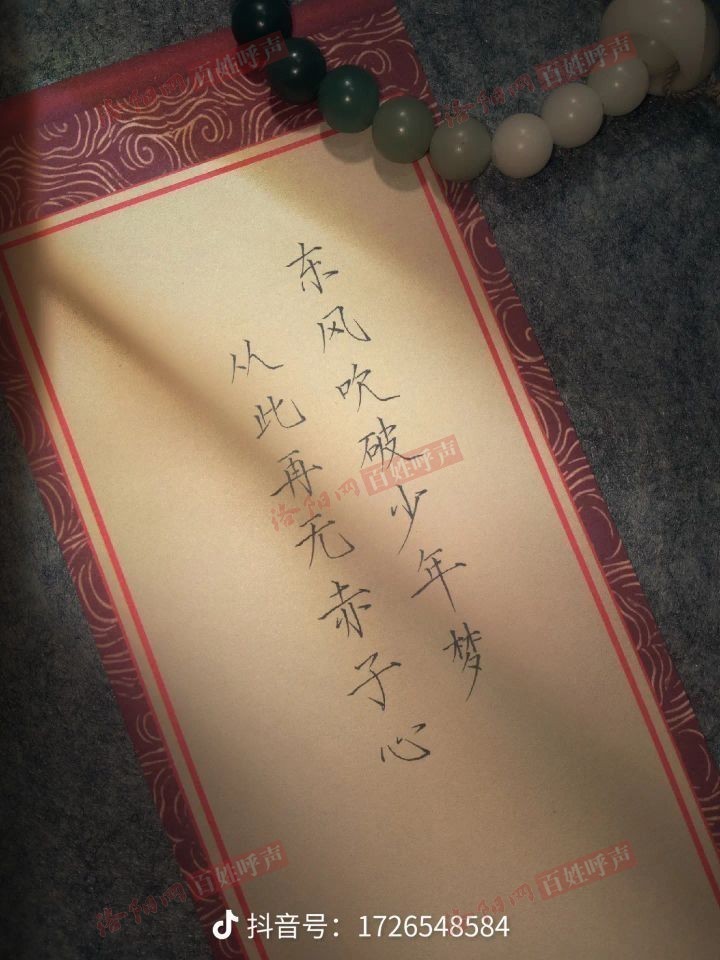 东风吹破少年梦
从此再无赤子心
洛阳网 百姓呼声
洛阳网 百姓呼声
洛阳网 百姓呼声
洛阳网 百姓呼声
洛阳网 百姓呼声
抖音号：1726548584